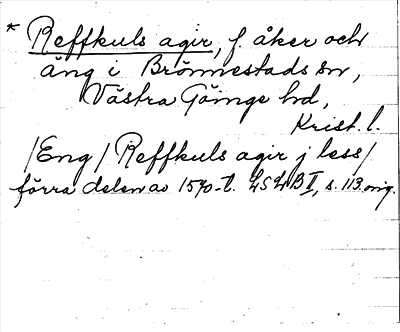 * Reffkuls agir, f. åker och
äng i Brönnestads sn,
Västra Göinge hd,
Krist. l.
/Eng/ Reffkuls agir j less/
förra delen av 1570-t. LSLB II, s. 113 orig.